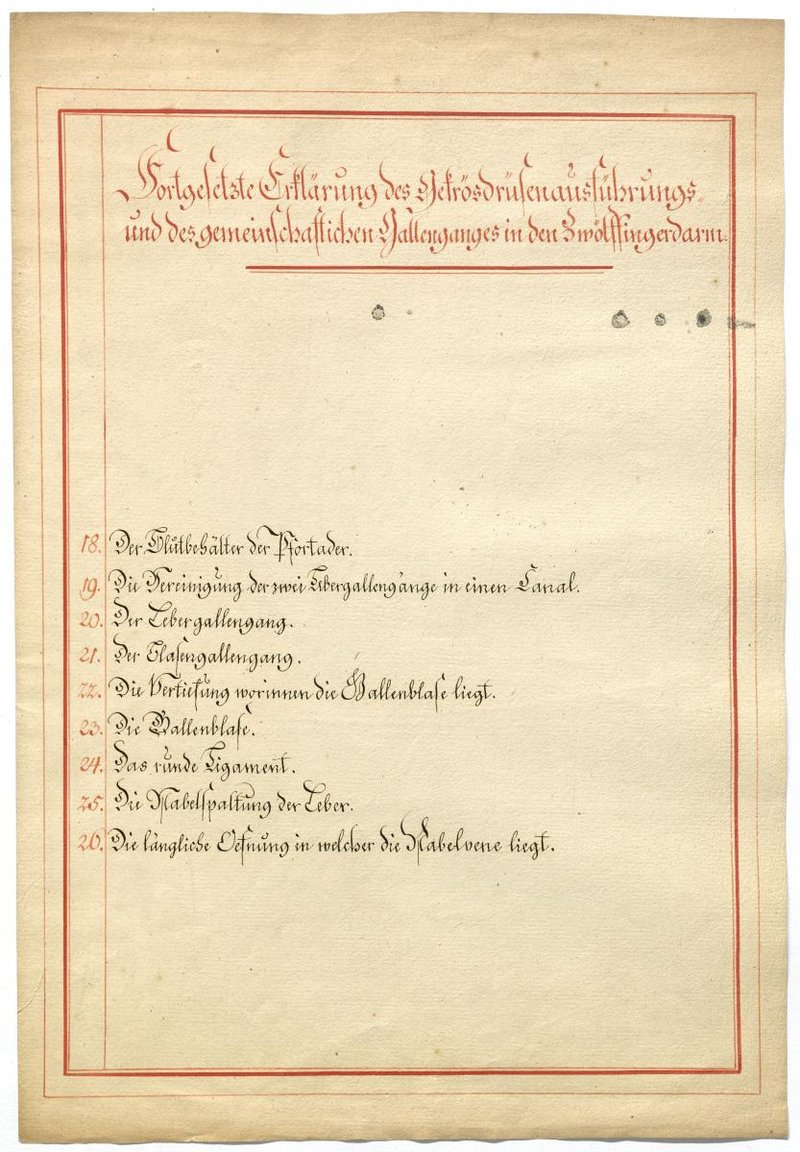 Fortgesetzte Erklärung des Gekrösdrüsenausführungs-
und des gemeinschaftlichen Gallenganges in den Zwölffingerdarm.
18. Der Blutbehälter der Pfortader.
19. Die Vereinigung der zwei Lebergallengänge in einen Canal.
20. Der Lebergallengang.
21. Der Blasengallengang.
22. Die Vertiefung worinnen die Gallenblase liegt.
23. Die Gallenblase.
24. Das runde Ligament.
25. Die Nabelspaltung der Leber.
26. Die längliche Oefnung in welcher die Nabelvene liegt.